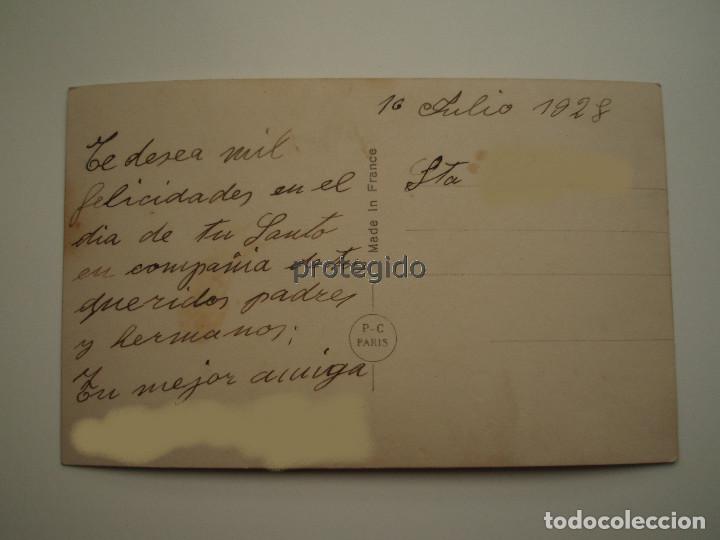 16 Julio 1928
Te desea mil
felicidades en el
dia de tu Santo
en compañia de tus
queridos padres
y hermanos;
Tu mejor amiga
Sta
Made in France
P-C
PARIS
protegido
todocoleccion